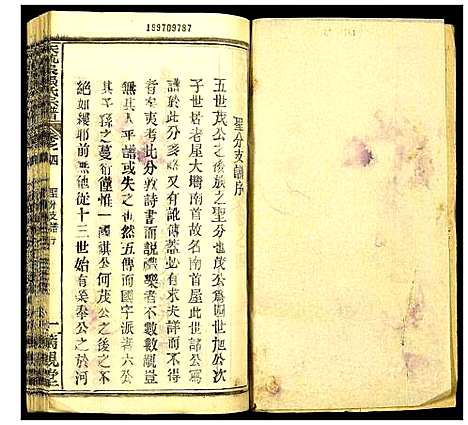 189709787
聖分支譜序
五世茂公之後族之聖分也茂公爲四世旭公次
子世居老屋大塘南首故名南首屋此世諸公爲
譜於此分多略又有訛傳蓋必有求其詳而不得
者矣夷考此分敦詩書而說禮樂者不數數覯豈
無其人乎譜或失之也然五傳而國字派者六公
其子孫之蔓衍僅惟一國祺公何茂公之後之不
絕如縷耶前無他從十三世始有矣奉公之於河
氏宗譜
卷之四
聖分支譜序
一